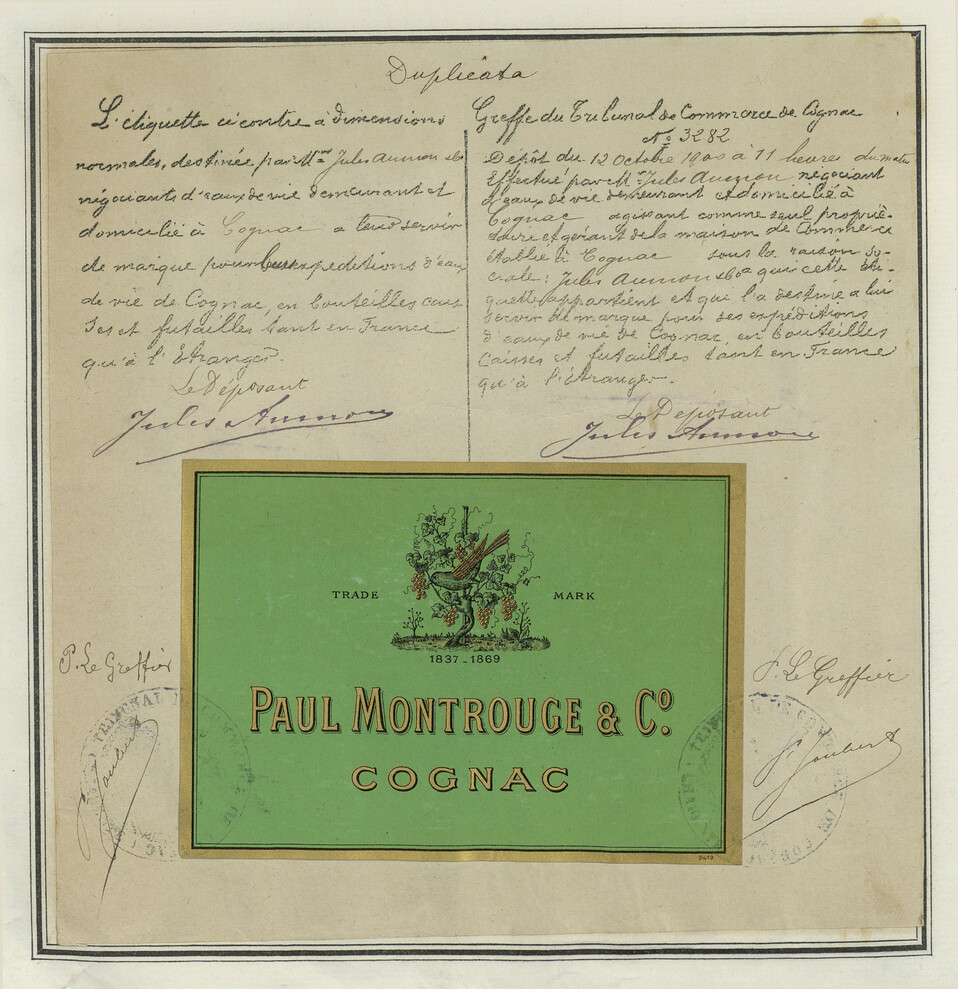 Duplicata
L'étiquette ci contre à dimensions
normales, destinée par Mr Jules Aumon &
négociants d'eaux de vie demeurant et
domicilié à Cognac a leur servir
de marque pour leurs expeditions d'eaux
de vie de Cognac, en bouteilles cais
ses et futailles tant en France
qu'à l'Etranger.
Le Déposant
Jules Aumon
Greffe du Tribunal de Commerce de Cognac
No 3282
Dépôt du 12 Octobre 1900 à 11 heures du matin
Effectué par Mr Jules Aumon négociant
d'eaux de vie demeurant et domicilié à
Cognac agissant comme seul proprié-
taire et gérant de la maison de Commerce
établie à Cognac sous la raison so-
ciale: Jules Aumon & Co que cette éti-
quette appartient et qui l'a destine a lui
servir de marque pour ses expéditions
d'eaux de vie de Cognac, en bouteilles
caisses et futailles tant en France
qu'à l'étranger.
Le Déposant
Jules Aumon
TRADE MARK
1837-1869
PAUL MONTROUGE & Co.
COGNAC
P. Le Greffier
Joubert
P. Le Greffier
Joubert